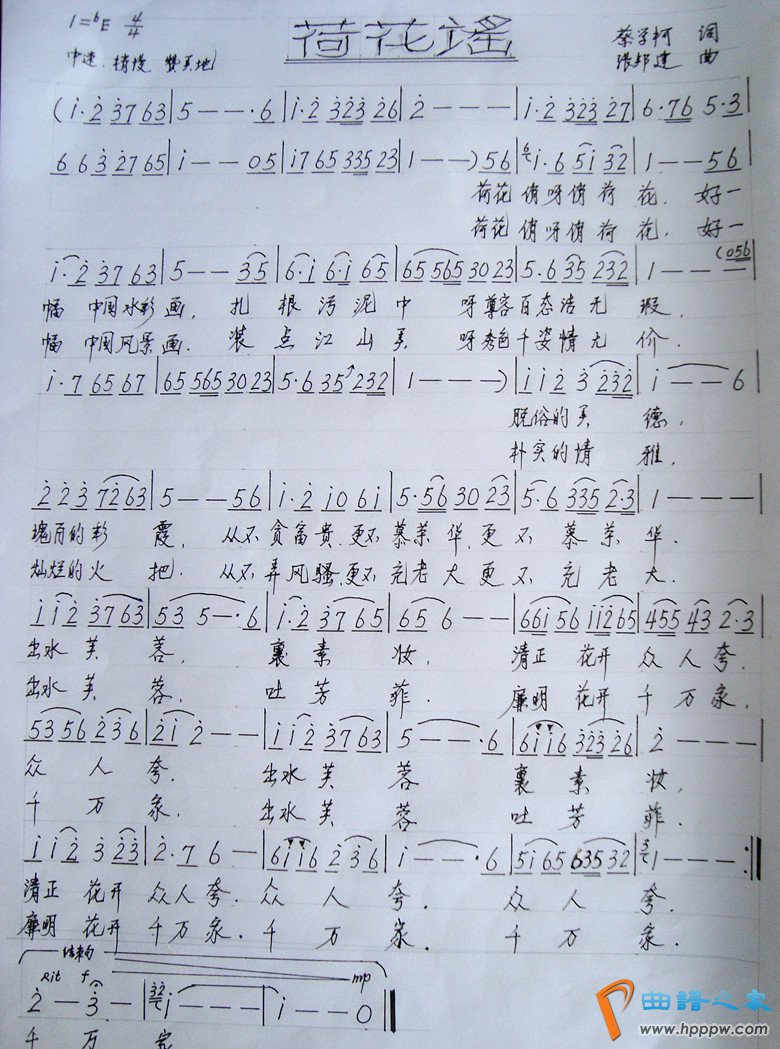 1=ᵇE 4/4
荷花谣
蔡学柯 词
中速 稍慢 赞美地
张邦建 曲
(i·2 37 63|5——·6|i·2 323 26|2———|i·2 323 27|6·76 5·3|
6 6 3 27 65|i——05|i7 65 335 23|1——)56|i·6 5i 32|1——56|
荷花俏呀俏荷花, 好一
荷花俏呀俏荷花, 好一
i·2 37 63|5——35|6·i 6·i 65|65 565 30 23|5·6 35 232|1——(056|
幅 中国水彩画, 扎根污泥中 呀尊容百态洁无瑕,
幅 中国风景画. 装点江山美 呀秀色千姿情无价.
i·7 65 67|65 565 30 23|5·6 35 232|1———)|i i 2 3 232|i——6|
脱俗的美德,
朴实的情雅,
2 2 3 72 63|5——56|i·2 i0 6i|5·56 30 23|5·6 335 2·3|1———|
瑰丽的彩霞, 从不贪富贵,更不慕荣华,更不慕荣华.
灿烂的火把. 从不弄风骚,更不充老大更不充老大.
i i2 37 63|53 5—·6|i·2 37 65|65 6——|66i 56 ii2 65|455 43 2·3|
出水芙蓉, 裹素妆, 清正花开众人夸.
出水芙蓉. 吐芳菲. 廉明花开千万家.
53 56 23 6|2i 2——|i i2 37 63|5——·6|6i i6 323 26|2———|
众人夸. 出水芙蓉 裹素妆,
千万家. 出水芙蓉 吐芳菲.
i i2 3 23|2·7 6—|6i i6 23 6|i——·6|5i 65 635 32|1———:|
清正花开众人夸. 众人夸. 众人夸.
廉明花开千万家. 千万家. 千万家.
结束句
Rit f mp
2—3—|i———|i——0‖
千万家
曲谱之家
www.hpppw.com